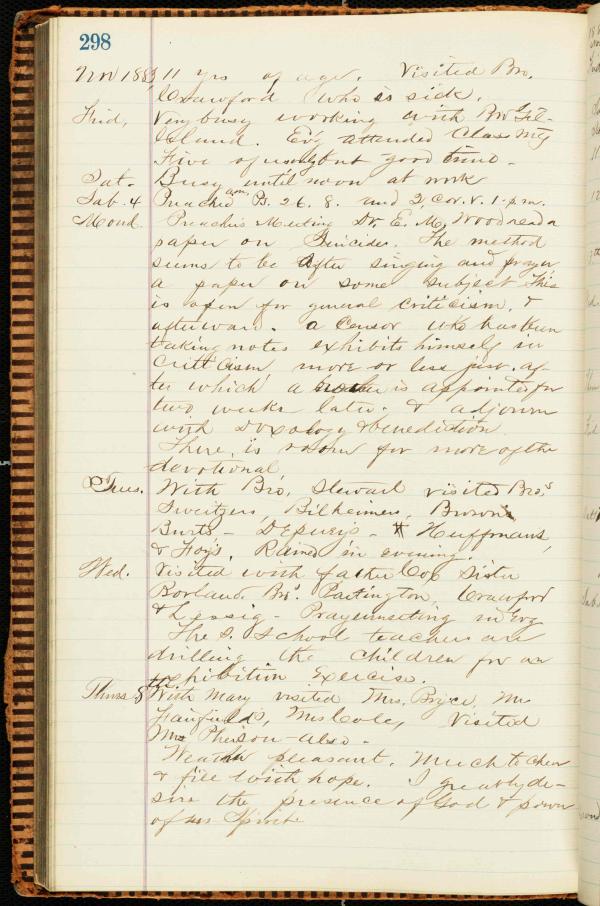 298
Nov 1883 11 yrs of age. Visited Bro.
Crawford who is sick.
Frid, Very busy working with Bro Gil-
liland. Ev'g attended Class Mtg
Five of us but good time.
Sat. Busy until noon at work
Sab. 4 Preached am, P. 26. 8. and 2, Cor. V. 1. p.m.
Mond. Preachers Meeting Dr. E. M. Wood read a
paper on Suicides. The method
seems to be after singing and prayer
a paper on some subject This
is open for general criticism, &
afterward. a Censor who has been
taking notes exhibits himself in
Criticism more or less just. af-
ter which a is appointed for
two weeks later. & adjourn
with Doxology & benediction.
There is room for more of the
devotional
Tues. With Bro, Stewart visited Bro's
Sweitzers, Bilheimers, Browns
Burts - Depuey's - Huffmans,
& Foys, Rained in evening.
Wed. Visited with father Cox Sister
Borland. Bro. Partington, Crawford
& Lessig - Prayermeeting in Evg
The S. School teachers are
drilling the children for an
exhibition Exercise.
Thurs. 8 With Mary visited Mrs. Bryce, Mr
Fairfield's, Mrs Cole, Visited
Mrs Pherson also.
Weather pleasant. Much to cheer
& fill with hope. I greatly de-
sire the presence of God & power
of his Spirit